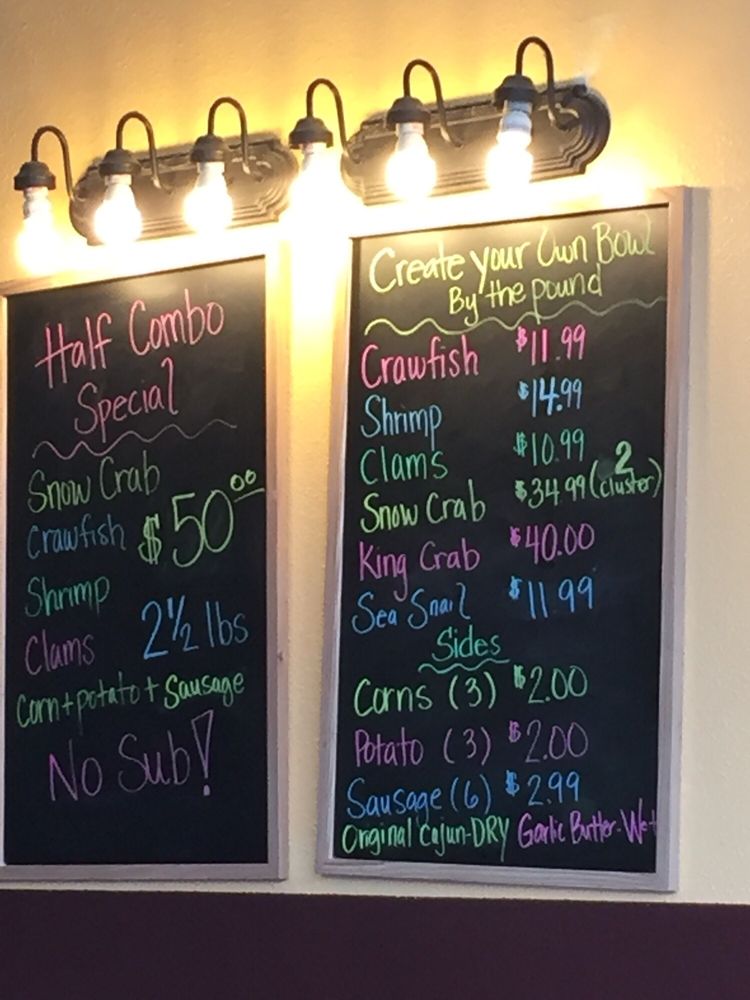 Half Combo
Special
Snow Crab
Crawfish
$50.00
Shrimp
Clams
2½ lbs
Corn+potato+Sausage
No Sub!
Create your Own Bowl
By the pound
Crawfish $11.99
Shrimp $14.99
Clams $10.99
Snow Crab $34.99 (2 cluster)
King Crab $40.00
Sea Snail $11.99
Sides
Corns (3) $2.00
Potato (3) $2.00
Sausage (6) $2.99
Original Cajun-DRY Garlic Butter-Wet